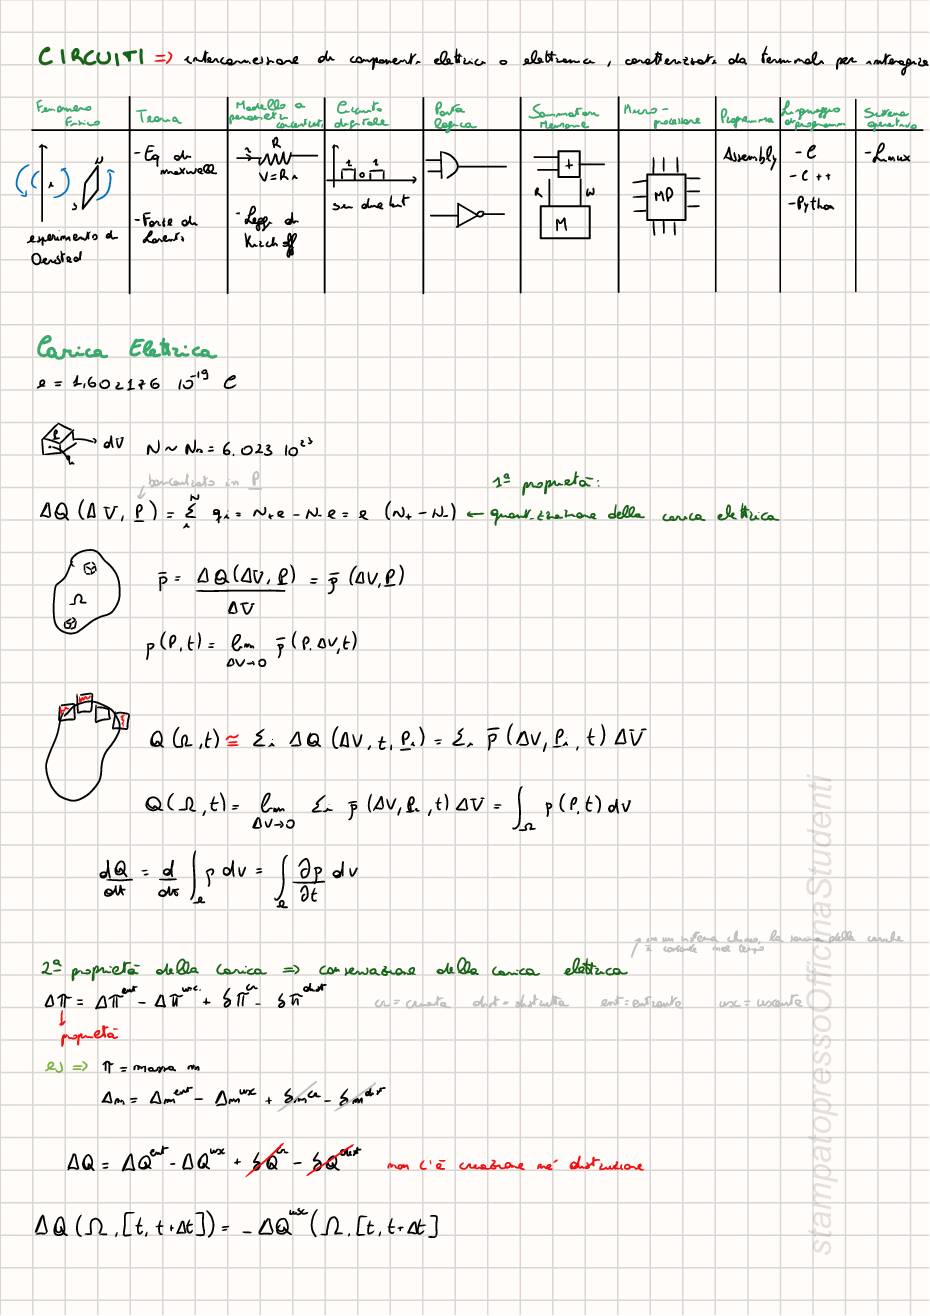 CIRCUITI => interconnessione di componenti elettrici o elettronici, caratterizzati da terminali per interagire
Fenomeno Fisico
Teoria
Modello a parametri concentrati
Circuito digitale
Porta logica
Sommatore Memorie
Micro-processore
Programma
Linguaggio di programm
Sistema operativo
- Eq. di maxwell
- Forze di Lorentz
R
i
V=Ri
- Leggi di Kirchoff
1 0 1
seu due bit
+
R W
M
MP
Assembly
- C
- C++
- Python
- Linux
N
i
s
esperimento di Oersted
Carica Elettrica
e = 1,602176 10⁻¹⁹ C
P
dV N ~ Nₐ = 6.023 10²³
localizzato in P
1ª proprietà:
ΔQ (ΔV, P) = Σᵢᴺ qᵢ = N₊e - N₋e = e (N₊ - N₋) ← quantizzazione della carica elettrica
Ω
ρ̄ = ΔQ(ΔV, P) / ΔV = ρ̄ (ΔV, P)
ρ(P,t) = lim ΔV→0 ρ̄ (P, ΔV, t)
Q(Ω,t) ≅ Σᵢ ΔQ (ΔV, t, Pᵢ) = Σᵢ ρ̄ (ΔV, Pᵢ, t) ΔV
Q(Ω,t) = lim ΔV→0 Σᵢ ρ̄ (ΔV, Pᵢ, t) ΔV = ∫_Ω ρ(P,t) dv
dQ/dt = d/dt ∫ ρ dv = ∫ ∂ρ/∂t dv
in un sistema chiuso, la somma delle cariche
è costante nel tempo
2ª proprietà della carica => conservazione della carica elettrica
Δπ = Δπᵉⁿᵗ - Δπᵘˢᶜ + δπᶜʳ - δπᵈⁱˢᵗ cr = creata dist = distrutta ent = entrante usc = uscente
↓
proprietà
es => π = massa m
Δm = Δmᵉⁿᵗ - Δmᵘˢᶜ + δmᶜʳ - δmᵈⁱˢᵗ
ΔQ = ΔQᵉⁿᵗ - ΔQᵘˢᶜ + δQᶜʳ - δQᵈⁱˢᵗ non c'è creazione né distruzione
ΔQ(Ω, [t, t+Δt]) = - ΔQᵘˢᶜ (Ω, [t, t+Δt]
stampatopressoOfficinaStudenti